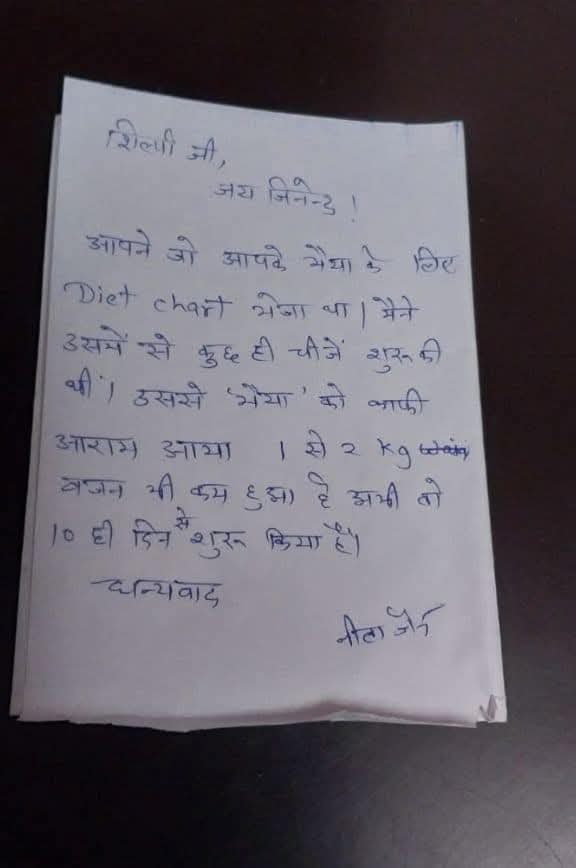 शिल्पी जी,
जय जिनेन्द्र !
आपने जो आपके भैया के लिए
Diet chart भेजा था। मैने
उसमें से कुछ ही चीजें शुरू की
थीं। उससे 'भैया' को काफी
आराम आया 1 से 2 kg
वजन भी कम हुआ है अभी तो
10 ही दिन से शुरू किया है।
धन्यवाद
नीता जैन